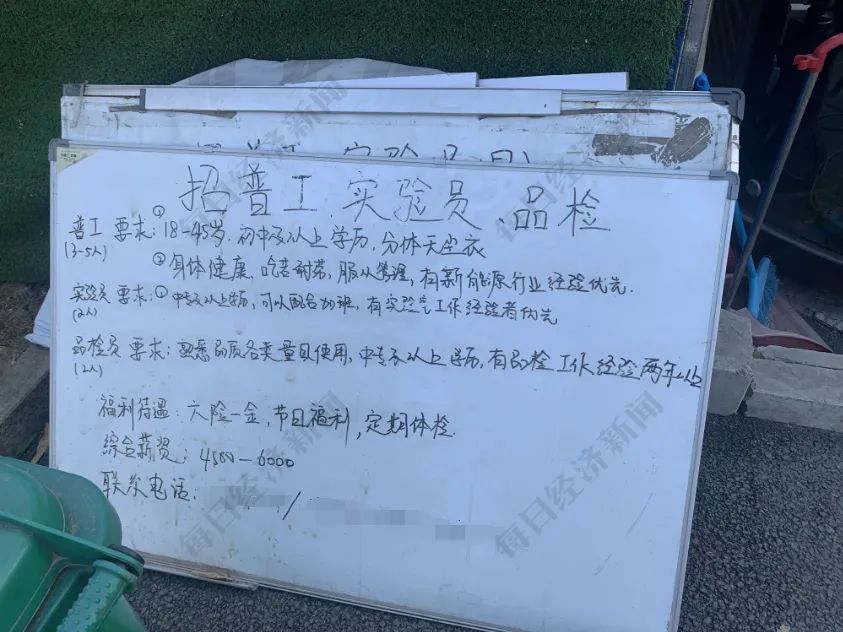 招普工、实验员、品检
普工 要求:① 18-45岁,初中及以上学历,分体无尘衣
(3-5人)
② 身体健康,吃苦耐劳,服从管理,有新能源行业经验优先.
实验员 要求:① 中专及以上学历,可以配合加班,有实验室工作经验者优先
(2人)
品检员 要求:熟悉品质各类量具使用,中专及以上学历,有品检工作经验两年以上
(2人)
福利待遇:六险一金,节日福利,定期体检.
综合薪资:4500-6000
联系电话:
/
每日经济新闻
每日经济新闻
每日经济新闻
每日经济新闻